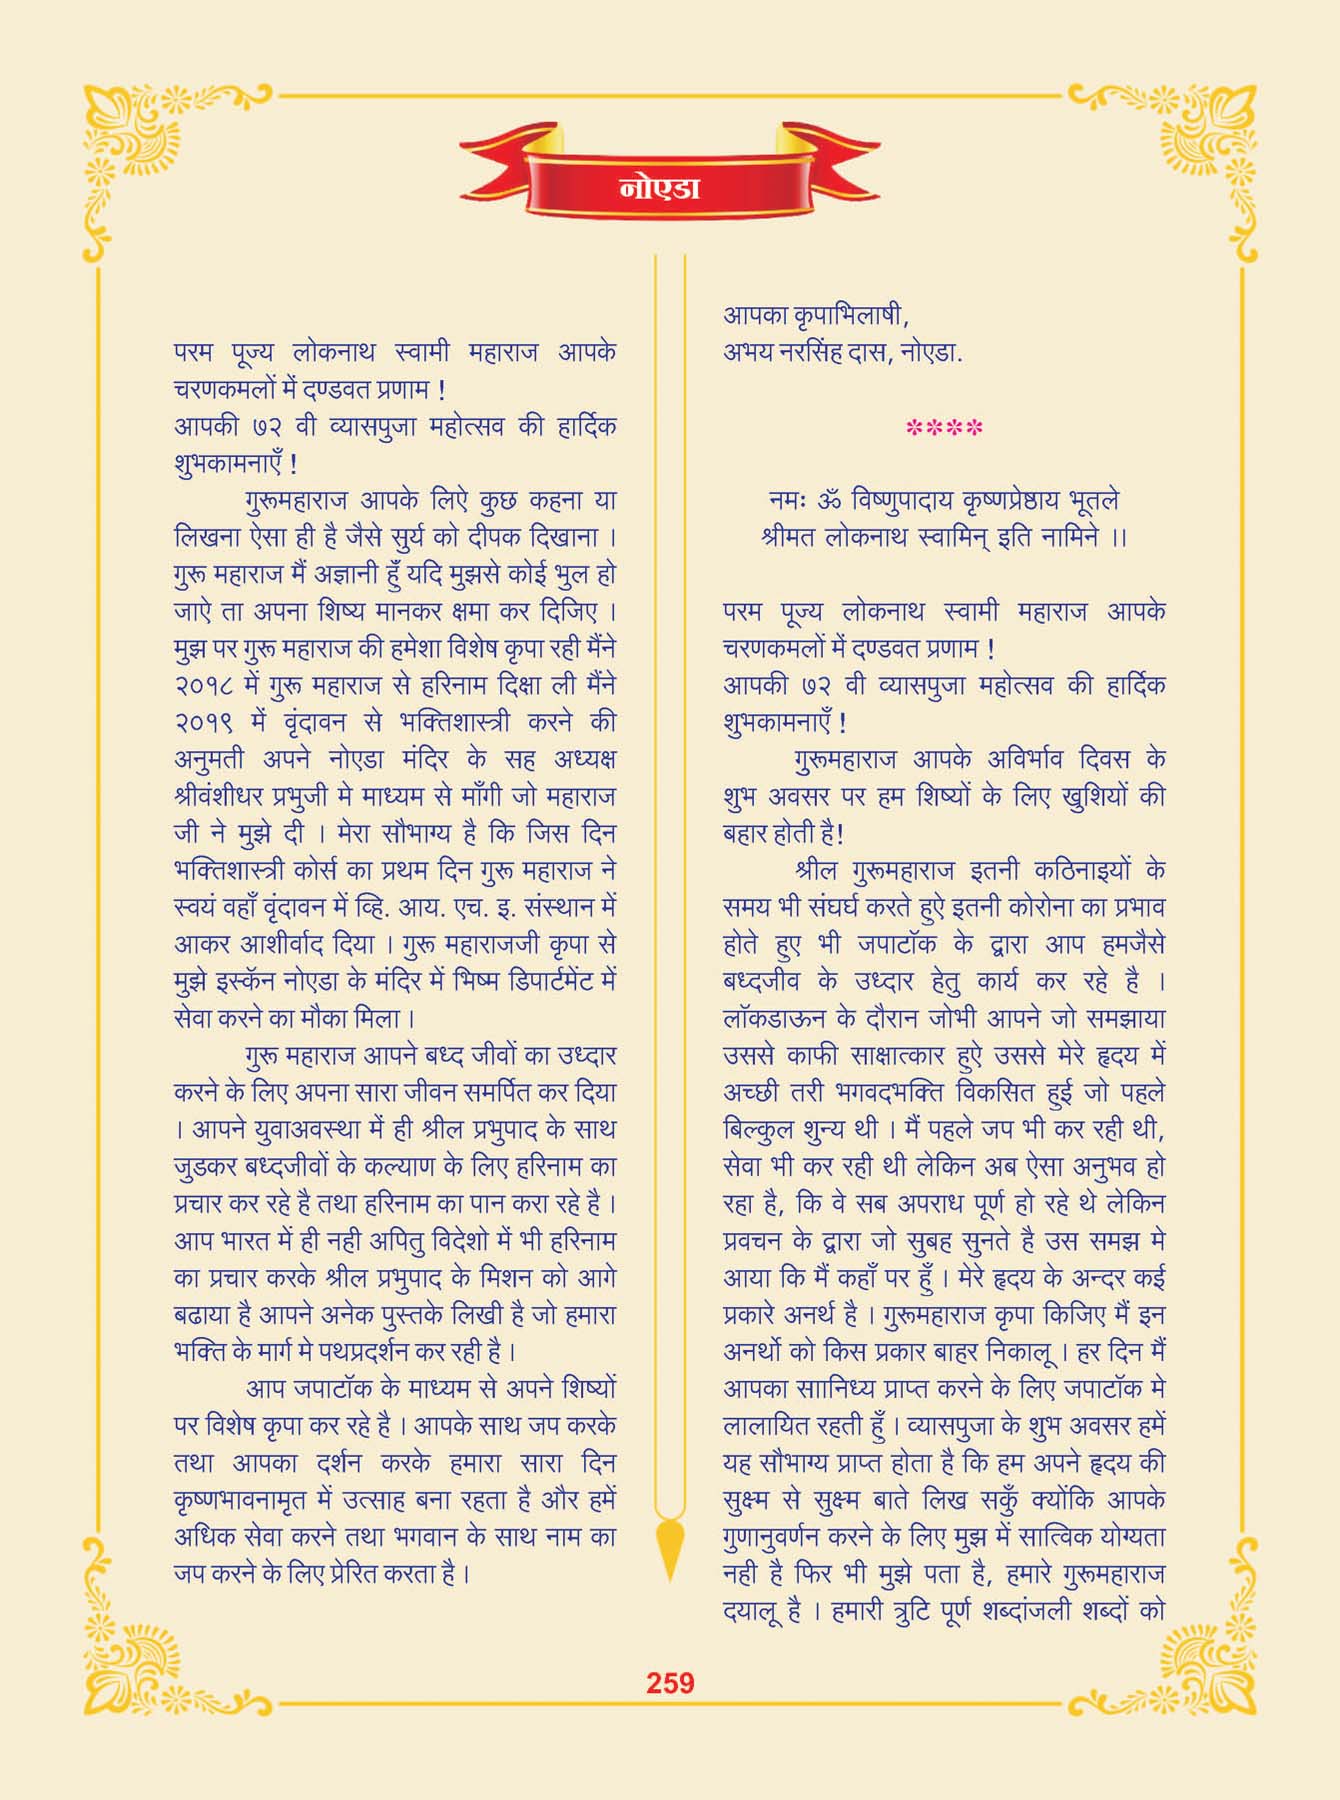 नोएडा
परम पूज्य लोकनाथ स्वामी महाराज आपके
चरणकमलों में दण्डवत प्रणाम !
आपकी ७२ वी व्यासपुजा महोत्सव की हार्दिक
शुभकामनाएँ !
गुरूमहाराज आपके लिऐ कुछ कहना या
लिखना ऐसा ही है जैसे सुर्य को दीपक दिखाना ।
गुरू महाराज मैं अज्ञानी हुँ यदि मुझसे कोई भुल हो
जाऐ ता अपना शिष्य मानकर क्षमा कर दिजिए ।
मुझ पर गुरू महाराज की हमेशा विशेष कृपा रही मैंने
२०१८ में गुरू महाराज से हरिनाम दिक्षा ली मैंने
२०१९ में वृंदावन से भक्तिशास्त्री करने की
अनुमती अपने नोएडा मंदिर के सह अध्यक्ष
श्रीवंशीधर प्रभुजी मे माध्यम से माँगी जो महाराज
जी ने मुझे दी । मेरा सौभाग्य है कि जिस दिन
भक्तिशास्त्री कोर्स का प्रथम दिन गुरू महाराज ने
स्वयं वहाँ वृंदावन में व्हि. आय. एच. इ. संस्थान में
आकर आशीर्वाद दिया । गुरू महाराजजी कृपा से
मुझे इस्कॅन नोएडा के मंदिर में भिष्म डिपार्टमेंट में
सेवा करने का मौका मिला ।
गुरू महाराज आपने बध्द जीवों का उध्दार
करने के लिए अपना सारा जीवन समर्पित कर दिया
। आपने युवाअवस्था में ही श्रील प्रभुपाद के साथ
जुडकर बध्दजीवों के कल्याण के लिए हरिनाम का
प्रचार कर रहे है तथा हरिनाम का पान करा रहे है ।
आप भारत में ही नही अपितु विदेशो में भी हरिनाम
का प्रचार करके श्रील प्रभुपाद के मिशन को आगे
बढाया है आपने अनेक पुस्तके लिखी है जो हमारा
भक्ति के मार्ग मे पथप्रदर्शन कर रही है ।
आप जपाटॉक के माध्यम से अपने शिष्यों
पर विशेष कृपा कर रहे है । आपके साथ जप करके
तथा आपका दर्शन करके हमारा सारा दिन
कृष्णभावनामृत में उत्साह बना रहता है और हमें
अधिक सेवा करने तथा भगवान के साथ नाम का
जप करने के लिए प्रेरित करता है ।
आपका कृपाभिलाषी,
अभय नरसिंह दास, नोएडा.
****
नमः ॐ विष्णुपादाय कृष्णप्रेष्ठाय भूतले
श्रीमत लोकनाथ स्वामिन् इति नामिने ।।
परम पूज्य लोकनाथ स्वामी महाराज आपके
चरणकमलों में दण्डवत प्रणाम !
आपकी ७२ वी व्यासपुजा महोत्सव की हार्दिक
शुभकामनाएँ !
गुरूमहाराज आपके अविर्भाव दिवस के
शुभ अवसर पर हम शिष्यों के लिए खुशियों की
बहार होती है!
श्रील गुरूमहाराज इतनी कठिनाइयों के
समय भी संघर्घ करते हुऐ इतनी कोरोना का प्रभाव
होते हुए भी जपाटॉक के द्वारा आप हमजैसे
बध्दजीव के उध्दार हेतु कार्य कर रहे है ।
लॉकडाऊन के दौरान जोभी आपने जो समझाया
उससे काफी साक्षात्कार हुऐ उससे मेरे हृदय में
अच्छी तरी भगवदभक्ति विकसित हुई जो पहले
बिल्कुल शुन्य थी । मैं पहले जप भी कर रही थी,
सेवा भी कर रही थी लेकिन अब ऐसा अनुभव हो
रहा है, कि वे सब अपराध पूर्ण हो रहे थे लेकिन
प्रवचन के द्वारा जो सुबह सुनते है उस समझ मे
आया कि मैं कहाँ पर हुँ । मेरे हृदय के अन्दर कई
प्रकारे अनर्थ है । गुरूमहाराज कृपा किजिए मैं इन
अनर्थो को किस प्रकार बाहर निकालू । हर दिन मैं
आपका साानिध्य प्राप्त करने के लिए जपाटॉक मे
लालायित रहती हुँ । व्यासपुजा के शुभ अवसर हमें
यह सौभाग्य प्राप्त होता है कि हम अपने हृदय की
सुक्ष्म से सुक्ष्म बाते लिख सकुँ क्योंकि आपके
गुणानुवर्णन करने के लिए मुझ में सात्विक योग्यता
नही है फिर भी मुझे पता है, हमारे गुरूमहाराज
दयालू है । हमारी त्रुटि पूर्ण शब्दांजली शब्दों को
259